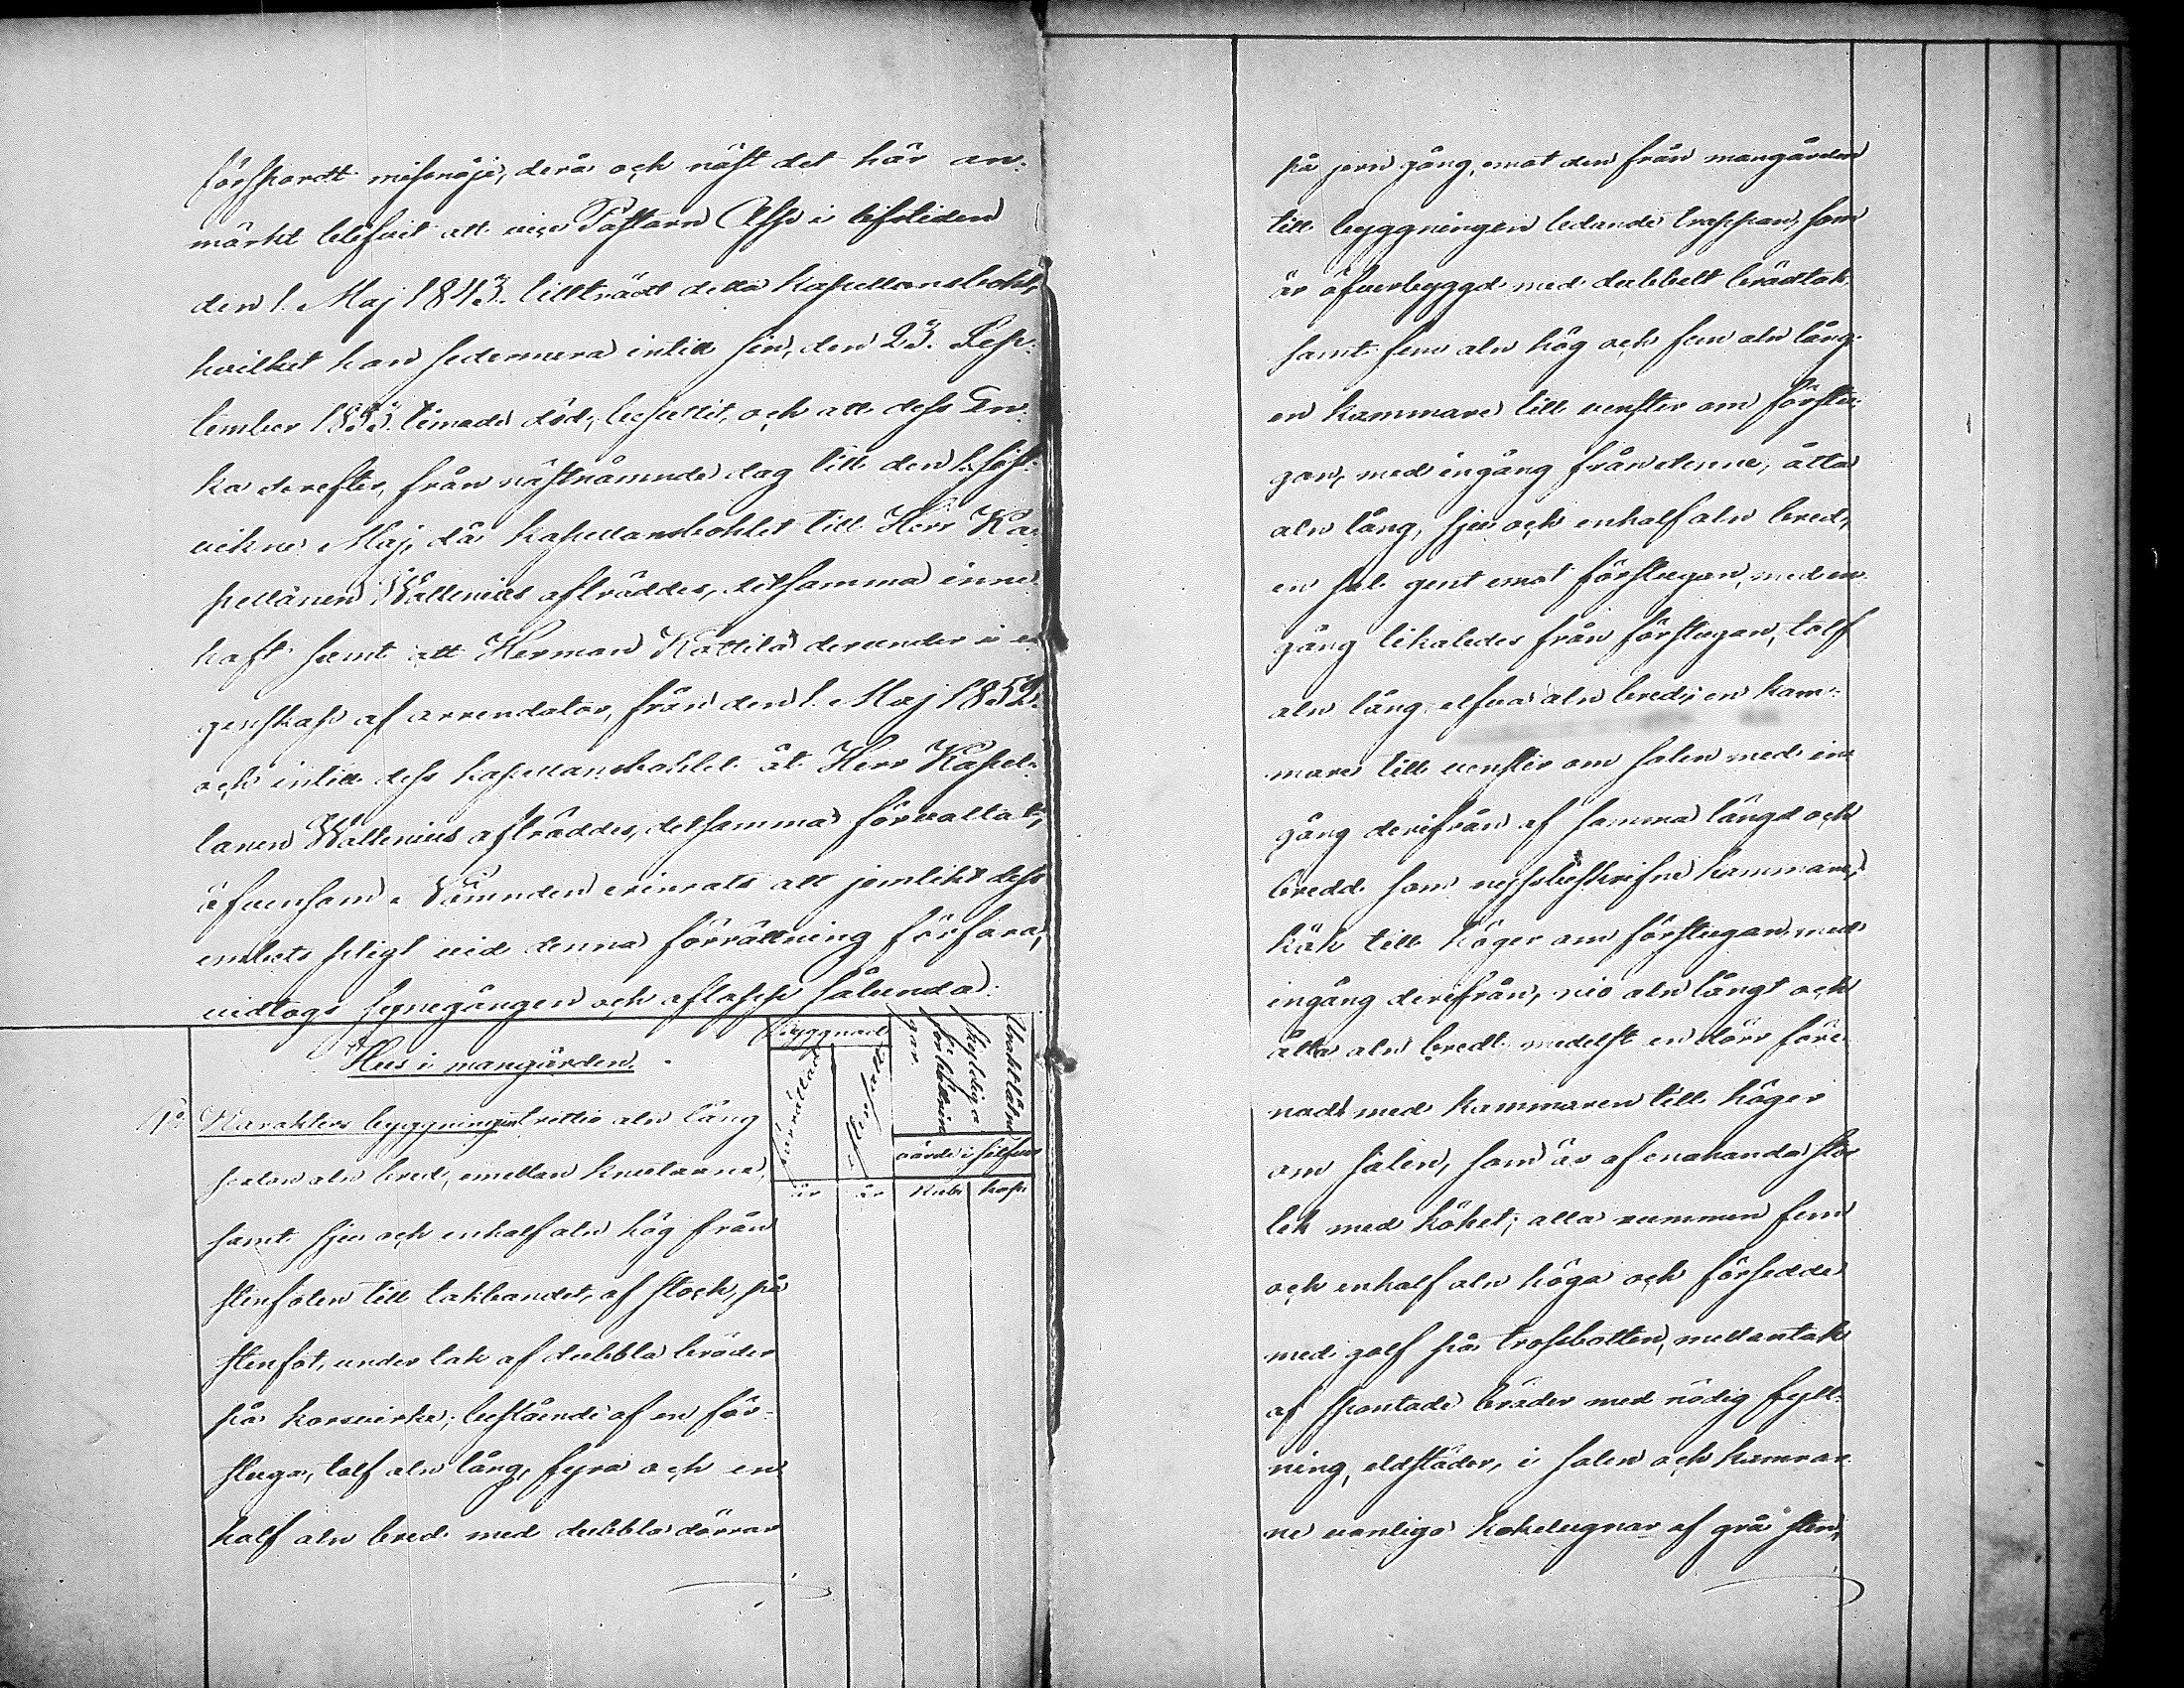 försport missnöje, derå och näst det här an-
märkt blifvit att vice Pastorn Alfs i lifstiden
den 1. Maj 1843. tillträdt detta kapellansbohl,
hvilket han sedermera intill sin, den 23. Sep-
tember 1853. timade död, besuttit, och att dess En-
ka derefter, från nästnämnde dag till den 1. sist-
vikne Maj, då kapellansbohlet till Herr Ka-
pellanen Wallenius afträddes, detsamma inne-
haft samt att Herman Kattila derunder i e-
genskap af arrendator, från den 1. Maj 1852.
och intill dess kapellansbohlet åt Herr Kapel-
lanen Wallenius afträddes, detsamma förvaltat,
äfvensom Nämnden erinrats att jemlikt dess
embets pligt vid denna förrättning förfara,
vidtogs synegången och aflopp sålunda:
Hus i mangården.
Byggnads
förrättad
Obestånds
skyldiga
förbättrin
gar.
värde i silfver
år år Rub. kop.
No 1. Karakters byggningen trettio aln lång
sexton aln bred, emellan knutarna,
samt sju och enhalf aln hög från
stenfoten till takbandet, af stock, på
stenfot, under tak af dubbla bräder
på korsvirke; bestående af en för-
stuga, tolf aln lång, fyra och en
half aln bred med dubbla dörrar
på jern gång, emot den från mangården
till byggningen ledande trappan, som
är öfverbyggd med dubbelt brädtak
samt fem aln hög och fem aln lång
en kammare till venster om förstu-
gan, med ingång från denne, åtta
aln lång, sju och enhalf aln bred,
en sal gent emot förstugan, med in-
gång likaledes från förstugan, tolf
aln lång elfva aln bred; en kam-
mare till venster om salen med in-
gång derifrån af samma längd och
bredd som nyssbeskrifne kammare;
kök till höger om förstugan med
ingång derifrån, nio aln långt och
åtta aln bredt medelst en dörr före-
nadt med kammaren till höger
om salen, som är af enahanda stor-
lek med köket; alla rummen fem
och enhalf aln höga och försedde
med golf på trossbotten, mellantak
af spontade bräder med nödig fyll-
ning, eldstäder, i salen och kamrar-
ne vanliga kakelugnar af grå sten,